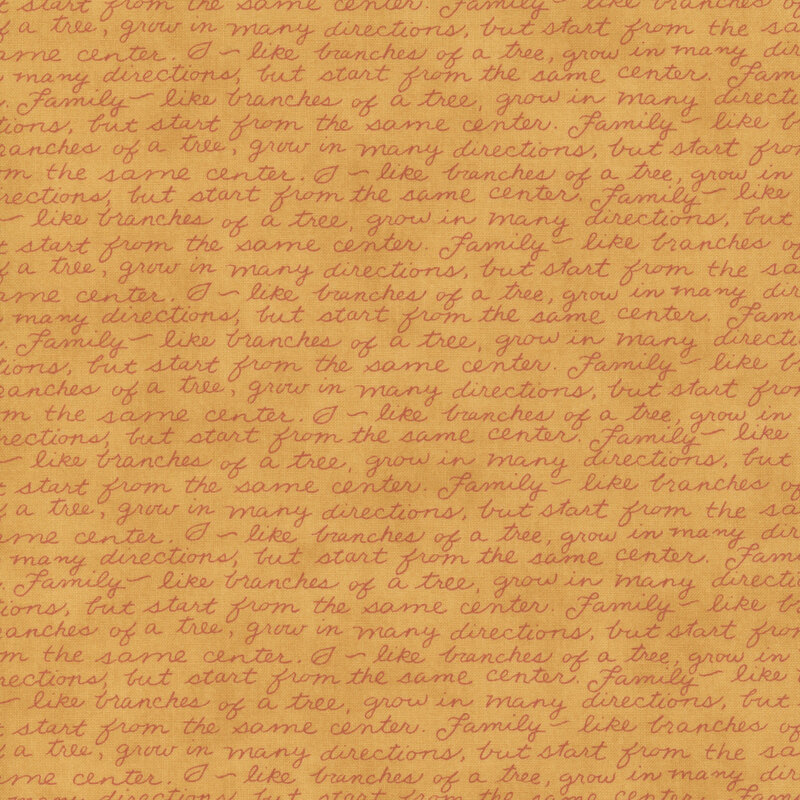 start from the same center. Family~ like branches of
a tree, grow in many directions, but start from the sa
ame center. ~ like branches of a tree, grow in many di
many directions, but start from the same center. Fam
. Family~ like branches of a tree, grow in many directi
tions, but start from the same center. Family~ like b
ranches of a tree, grow in many directions, but start fro
om the same center. ~ like branches of a tree, grow in
rections, but start from the same center. Family~ like
~ like branches of a tree, grow in many directions, but
t start from the same center. Family~ like branches of
f a tree, grow in many directions, but start from the sa
ame center. ~ like branches of a tree, grow in many di
many directions, but start from the same center. Fam
. Family~ like branches of a tree, grow in many directi
tions, but start from the same center. Family~ like b
ranches of a tree, grow in many directions, but start fro
m the same center. ~ like branches of a tree, grow in
rections, but start from the same center. Family~ like
~ like branches of a tree, grow in many directions, but
t start from the same center. Family~ like branches of
f a tree, grow in many directions, but start from the sa
ame center. ~ like branches of a tree, grow in many di
many directions, but start from the same center. Fam
. Family~ like branches of a tree, grow in many directi
tions, but start from the same center. Family~ like b
ranches of a tree, grow in many directions, but start fro
m the same center. ~ like branches of a tree, grow in
rections, but start from the same center. Family~ like
~ like branches of a tree, grow in many directions, but
t start from the same center. Family~ like branches of
f a tree, grow in many directions, but start from the sa
ame center. ~ like branches of a tree, grow in many di
many directions, but start from the same center. Fam